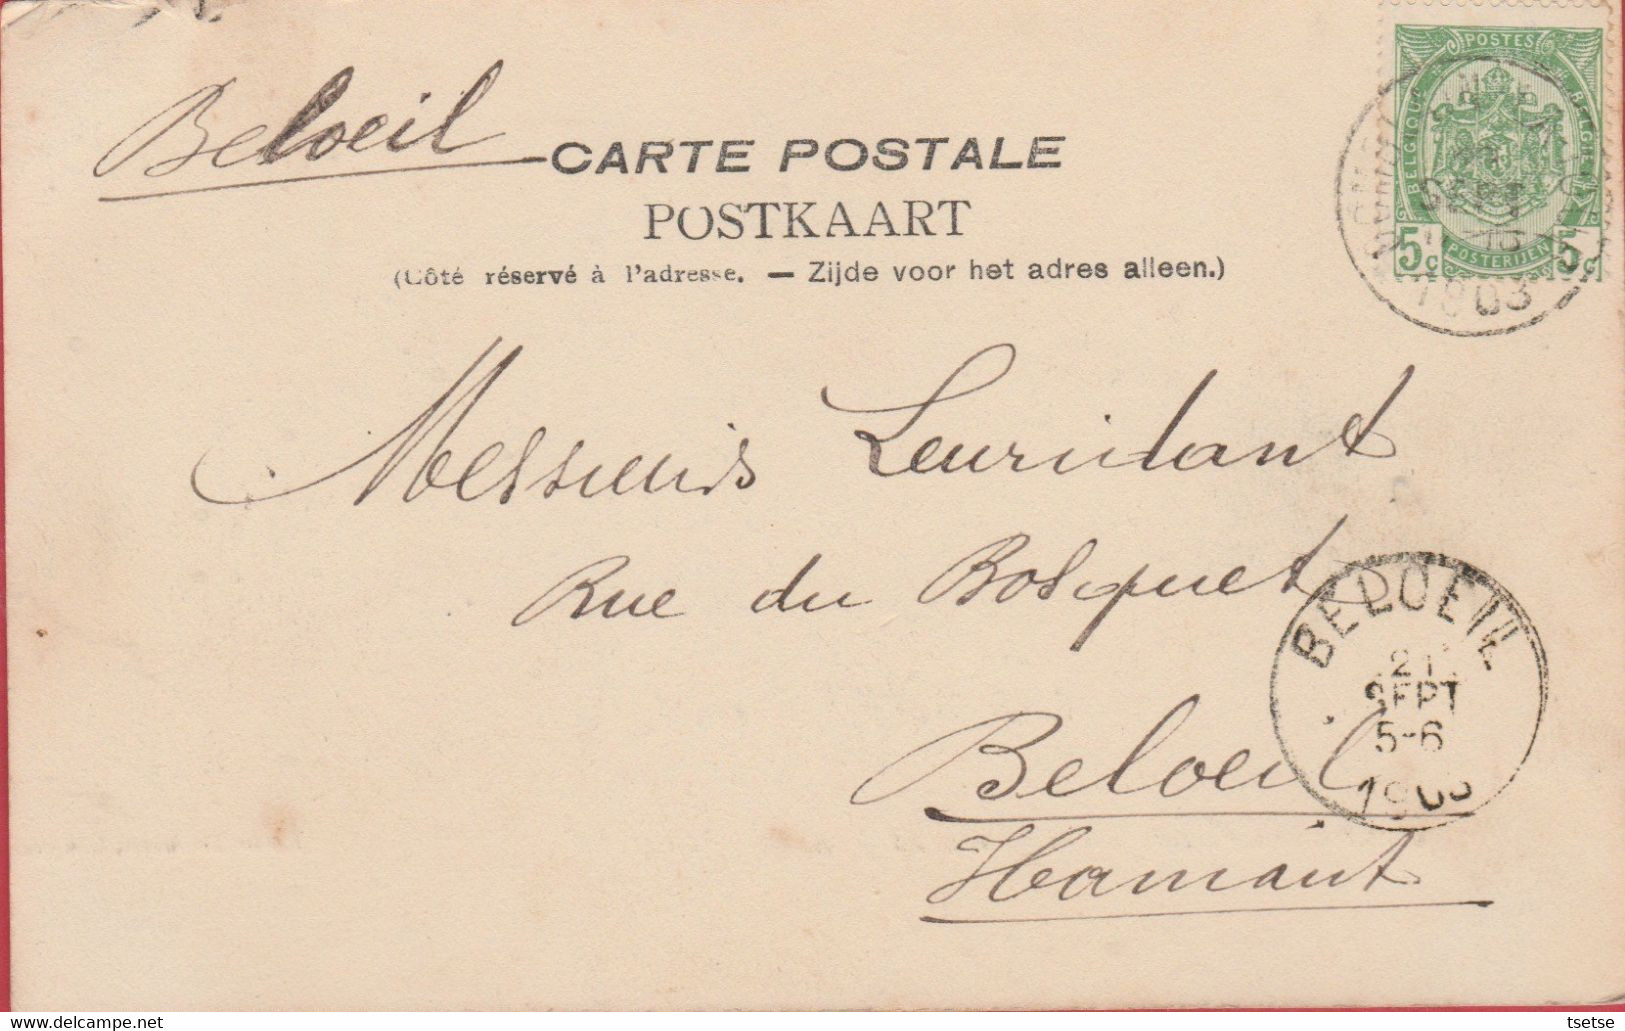 Beloeil
CARTE POSTALE
POSTKAART
(Côté réservé à l'adresse. — Zijde voor het adres alleen.)
POSTES
BELGIQUE
BELGIË
SEPT
5c
POSTERIJEN
5c
1903
Messieurs Leuridant
Rue du Bosquet
BELOEIL
21
SEPT
5-6
1903
Beloeil
Hainaut
www.delcampe.net
tsetse